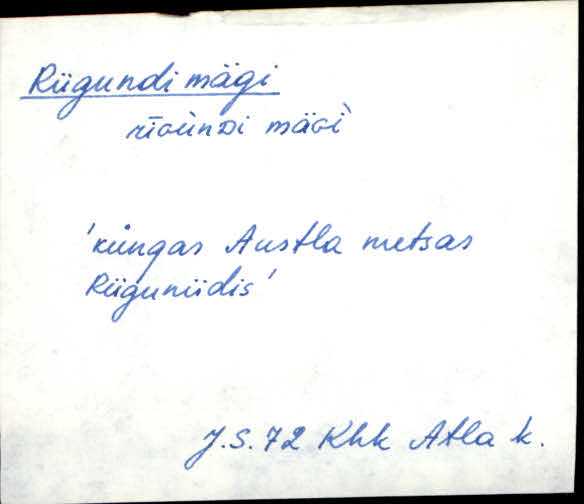 Riigundi mägi
rīɢùnᴅi mäɢì
'küngas Austla metsas
Riiguniidis'
J.S. 72 Khk Atla k.